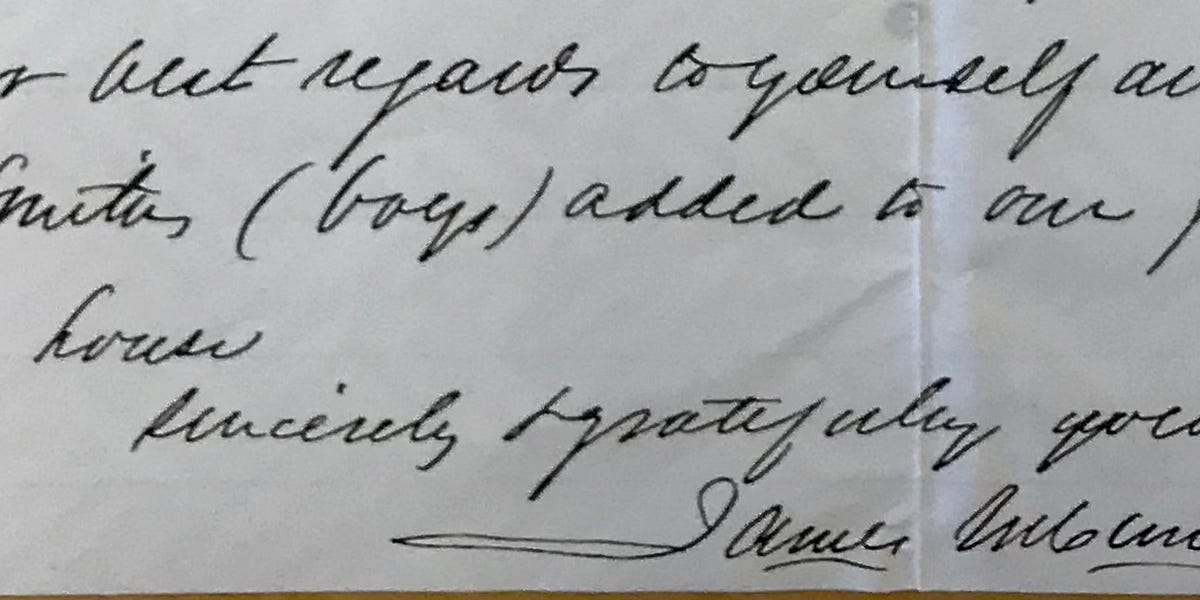 best regards to yourself
(boys) added to our
house
sincerely & gratefully
James